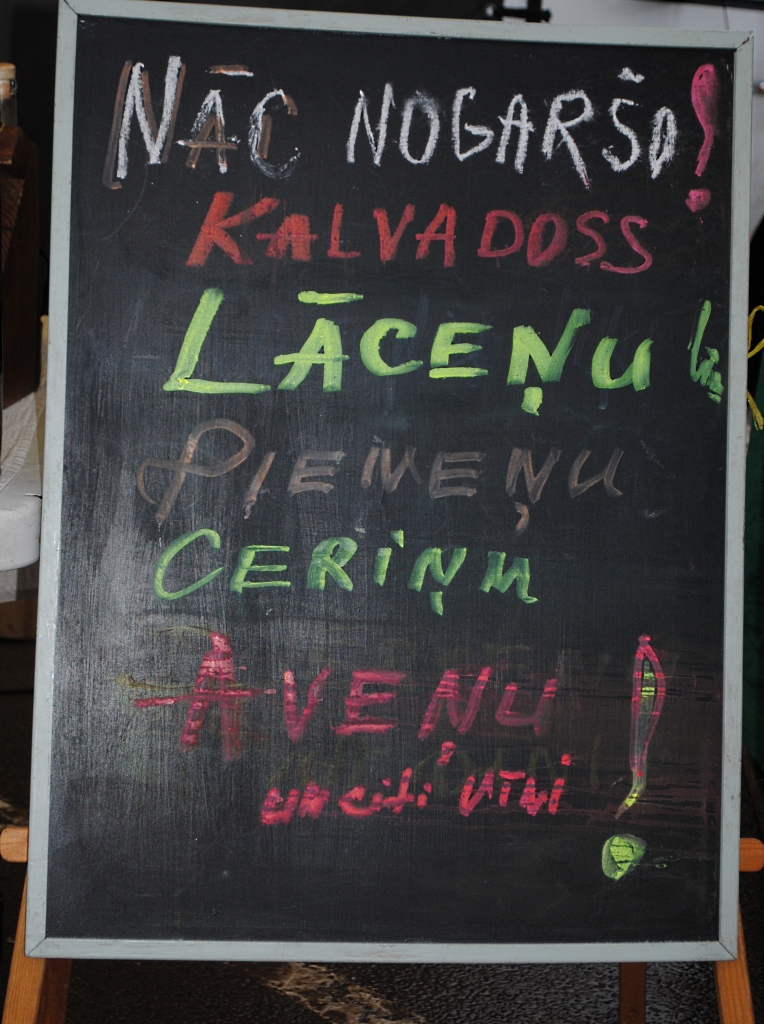 NĀC NOGARŠO!
KALVADOSS
LĀCEŅU
PIENEŅU
CERIŅU
AVEŅU !
un citi vīni